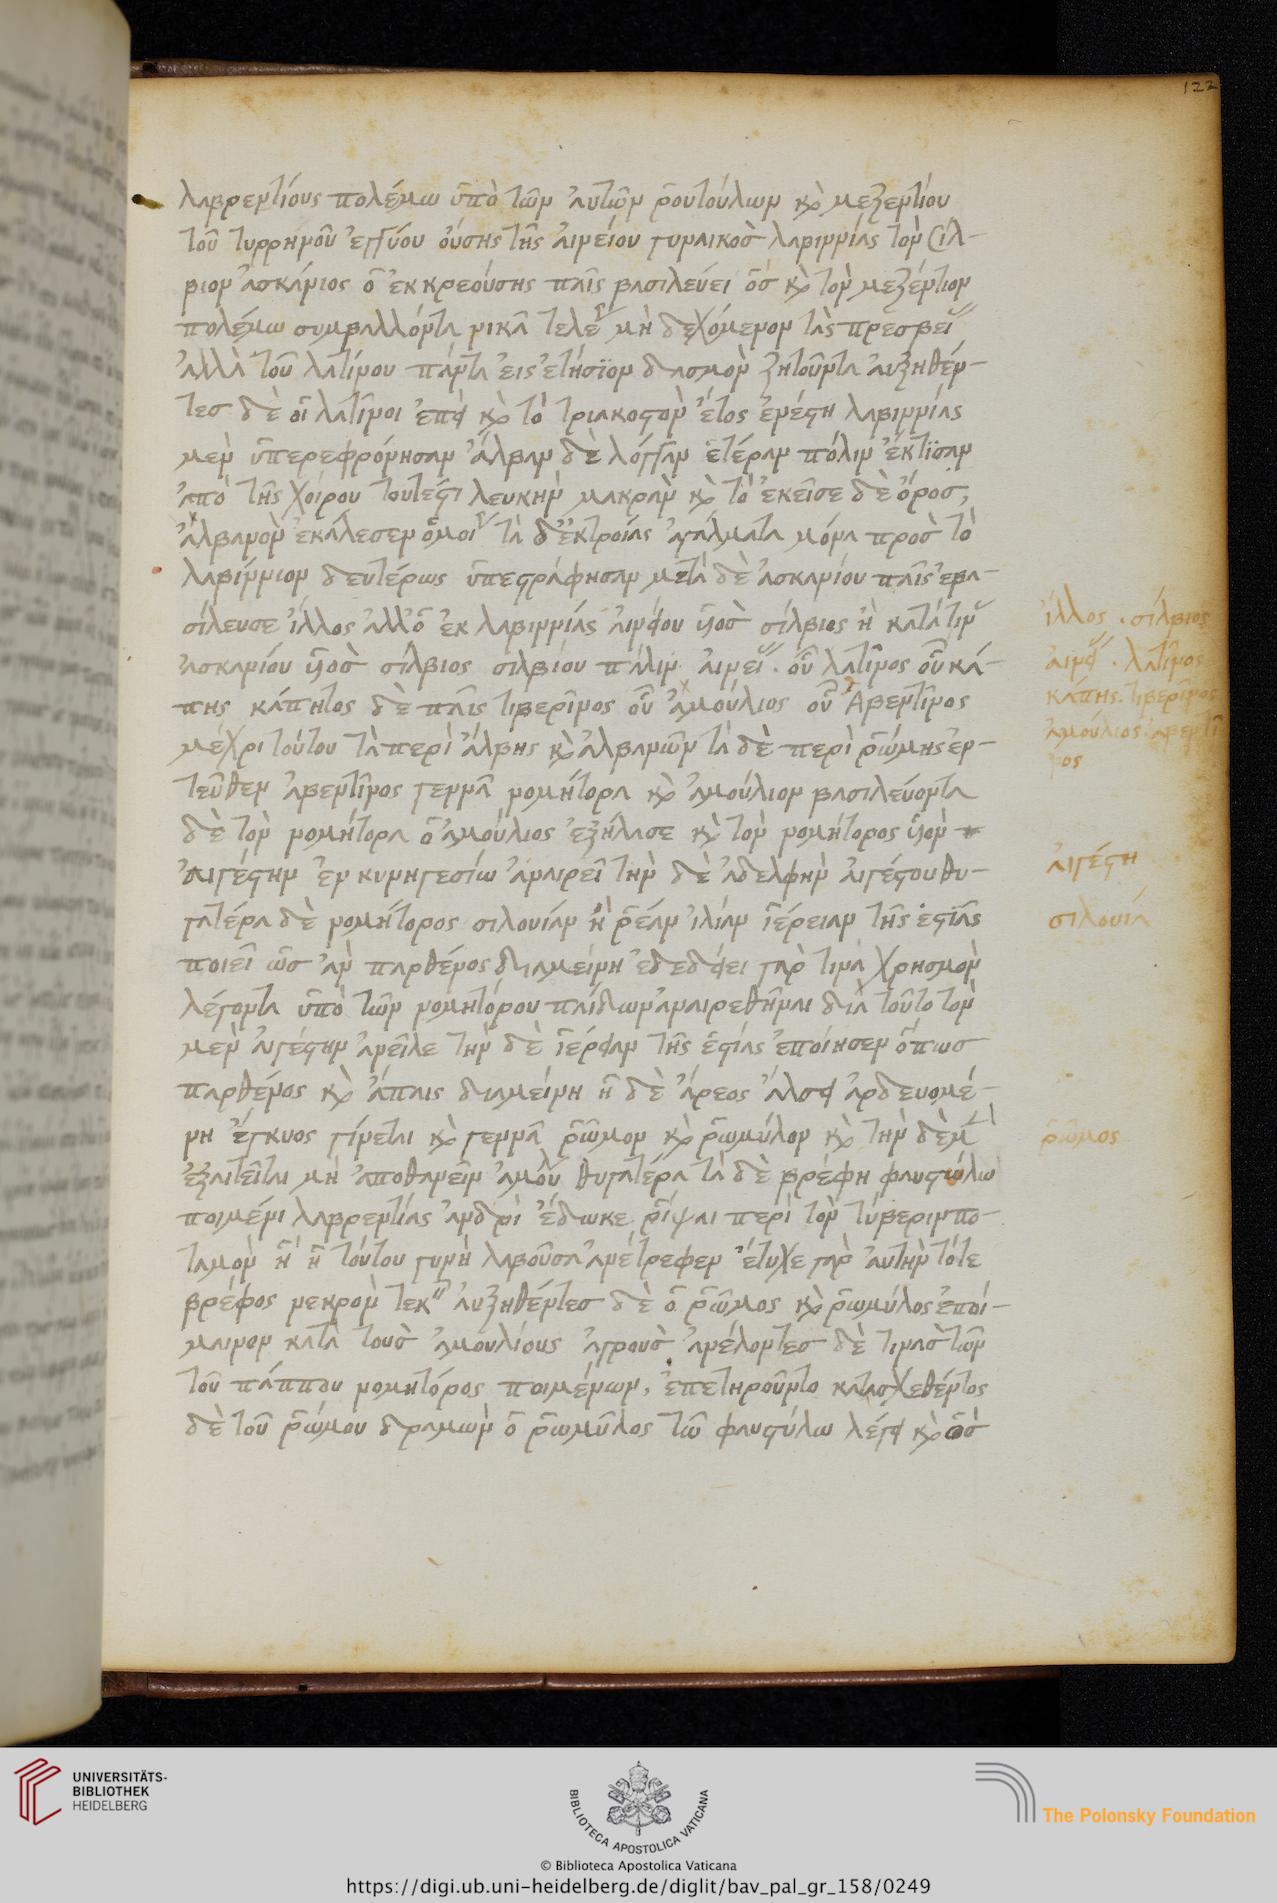 122
λαβρεντίους πολέμω ὑπὸ τῶν ἀυτῶν ῥουτούλων κὶ μεζεντίου
τοῦ τυρρηνοῦ ἐγγύου ὀύσης τῆς ἀινείου γυναικοσ λαβιννίας τὸν σίλ-
βιον ἀσκάνιος ὁ ἐκ κρεούσης παῖς βασιλεύει ὁσ κὶ τὸν μεζέντιον
πολέμω συμβαλλόντα νικᾶ μὴ δεχόμενον τὰς πρεσβεί
ἀλλὰ τοῦ λατίνου πάντα ἐις ἐτήσϊον δασμὸν ζητοῦντα ἀυξηθέν-
τεσ δὲ οἱ λατῖνοι ἐπεὶ κὶ τὸ τριακοστὸν ἔτος ἐνέστη λαβιννίας
μὲν ὑπερεφρόνησαν ἄλβαν δὲ λόγγαν ἑτέραν πόλιν ἔκτϊσαν
ἀπὸ τῆς χοίρου τουτέστι λευκὴν μακρὰν κὶ τὸ ἐκεῖσε δὲ ὄροσ,
ἀλβανὸν ἐκάλεσεν ὁμοί τὰ δ' ἐκτροίας ἀγάλματα μόνα προσ τὸ
λαβίννιον δευτέρως ὑπεστράφησαν μετὰ δὲ ἀσκανίου παῖς ἐβα-
σίλευσε ἴλλος ἀλλ' ὁ ἐκ λαβιννίας ἀινείου ὑιοσ σίλβιος ἢ κατά τιν
ἀσκανίου ὑιοσ σίλβιος σιλβίου πάλιν ἀινεί. οὗ λατῖνος οὗ κά-
πης κάπητος δὲ παῖς τιβερῖνος οὗ ἀμούλιος οὗ Ἀβεντῖνος
μέχρι τούτου τὰ περὶ ἄλβης κὶ ἀλβανῶν τὰ δὲ περὶ ῥώμης ἐν-
τεῦθεν ἀβεντῖνος γεννᾶ νομήτορα κὶ ἀμούλιον βασιλεύοντα
δὲ τὸν νομήτορα ὁ ἀμούλιος ἐξήλασε κὶ τὸν νομήτορος ὑιὸν
ἀιγέστην ἐν κυνηγεσίω ἀναιρεῖ τὴν δὲ ἀδελφὴν ἀιγέστου θυ-
γατέρα δὲ νομήτορος σιλουίαν ἢ ῥέαν ἰλίαν ἱέρειαν τῆς ἑστίας
ποιεῖ ὡσ ἀν παρθένος διαμείνη ἐδεδίει γαρ τινὰ χρησμὸν
λέγοντα ὑπὸ τῶν νομητόρου παίδων ἀναιρεθῆναι διὰ τοῦτο τὸν
μὲν ἀιγέστην ἀνεῖλε τὴν δὲ ἱέρειαν τῆς ἑστίας ἐποίησεν ὅπωσ
παρθένος κὶ ἄπαις διαμείνη ἡ δὲ ἄρεος ἄλσει ἀρδευομέ-
νη ἔγκυος γίνεται κὶ γεννᾶ ῥῶμον κὶ ῥωμύλον κὶ τὴν δὲ μ
ἐξαιτεῖται μὴ ἀποθανεῖν ἀμού θυγατέρα τὰ δὲ βρέφη φαυστύλω
ποιμένι λαβρεντίας ἀνδρὶ ἔδωκε ῥίψαι περὶ τὸν τύβεριν πο-
ταμὸν ἡ τούτου γυνὴ λαβοῦσα ἀνέτρεφεν ἔτυχε γαρ ἀυτὴν τότε
βρέφος νεκρὸν τεκ ἀυξηθέντεσ δὲ ὁ ῥῶμος κὶ ῥωμύλος ἐποί-
μαινον κατὰ τουσ ἀμουλίους ἀγρουσ ἀνέλοντεσ δὲ τινασ τῶν
τοῦ πάππου νομητόρος ποιμένων, ἐπετηροῦντο κατασχεθέντος
δὲ τοῦ ῥώμου δραμὼν ὁ ῥωμῦλος τῶ φαυστύλω λέγει κὶ ὁσ
ἴλλος . σίλβιος
ἀινεί . λατῖνος
κάπης. τιβερῖνος
ἀμούλιος. ἀβεντῖ
νος
ἀιγέστη
σιλουία
ῥῶμος
UNIVERSITÄTS-
BIBLIOTHEK
HEIDELBERG
BIBLIOTECA APOSTOLICA VATICANA
The Polonsky Foundation
© Biblioteca Apostolica Vaticana
https://digi.ub.uni-heidelberg.de/diglit/bav_pal_gr_158/0249